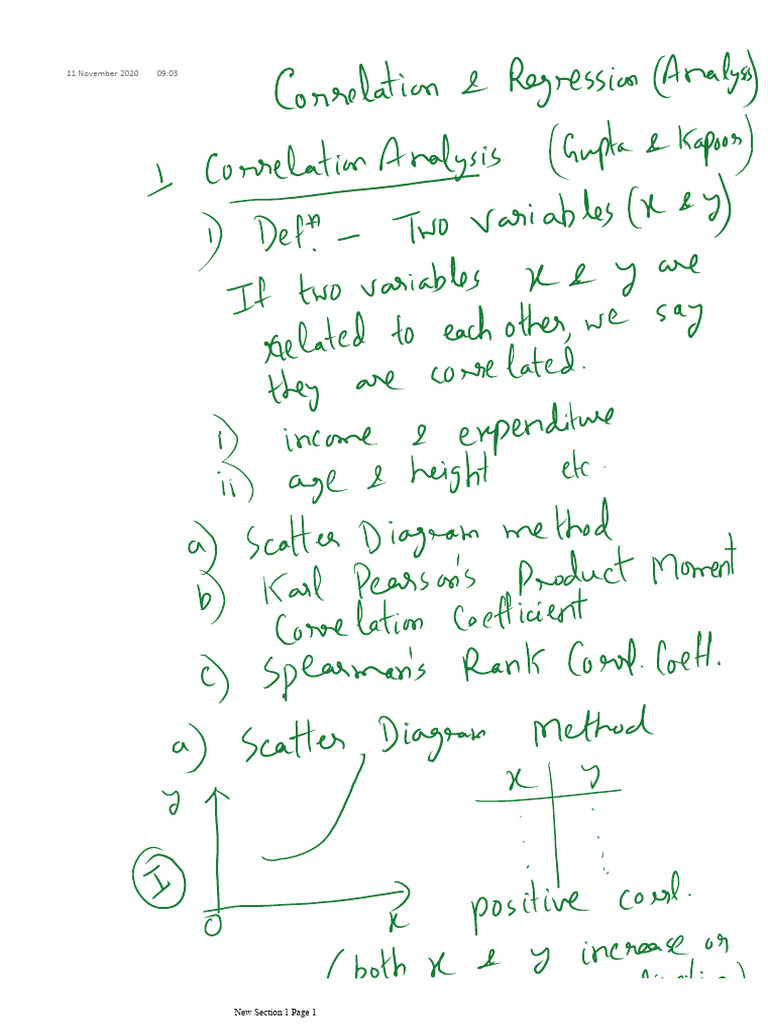 11 November 2020 09:03
Correlation & Regression (Analysis)
1 Correlation Analysis (Gupta & Kapoor)
1) Defn. – Two variables (x & y)
If two variables x & y are
related to each other, we say
they are correlated.
i) income & expenditure
ii) age & height etc.
a) Scatter Diagram method
b) Karl Pearson's Product Moment
Correlation Coefficient
c) Spearman's Rank Corrl. Coeff.
a) Scatter Diagram Method
x y
y
I
O x
positive corrl.
(both x & y increase or
New Section 1 Page 1